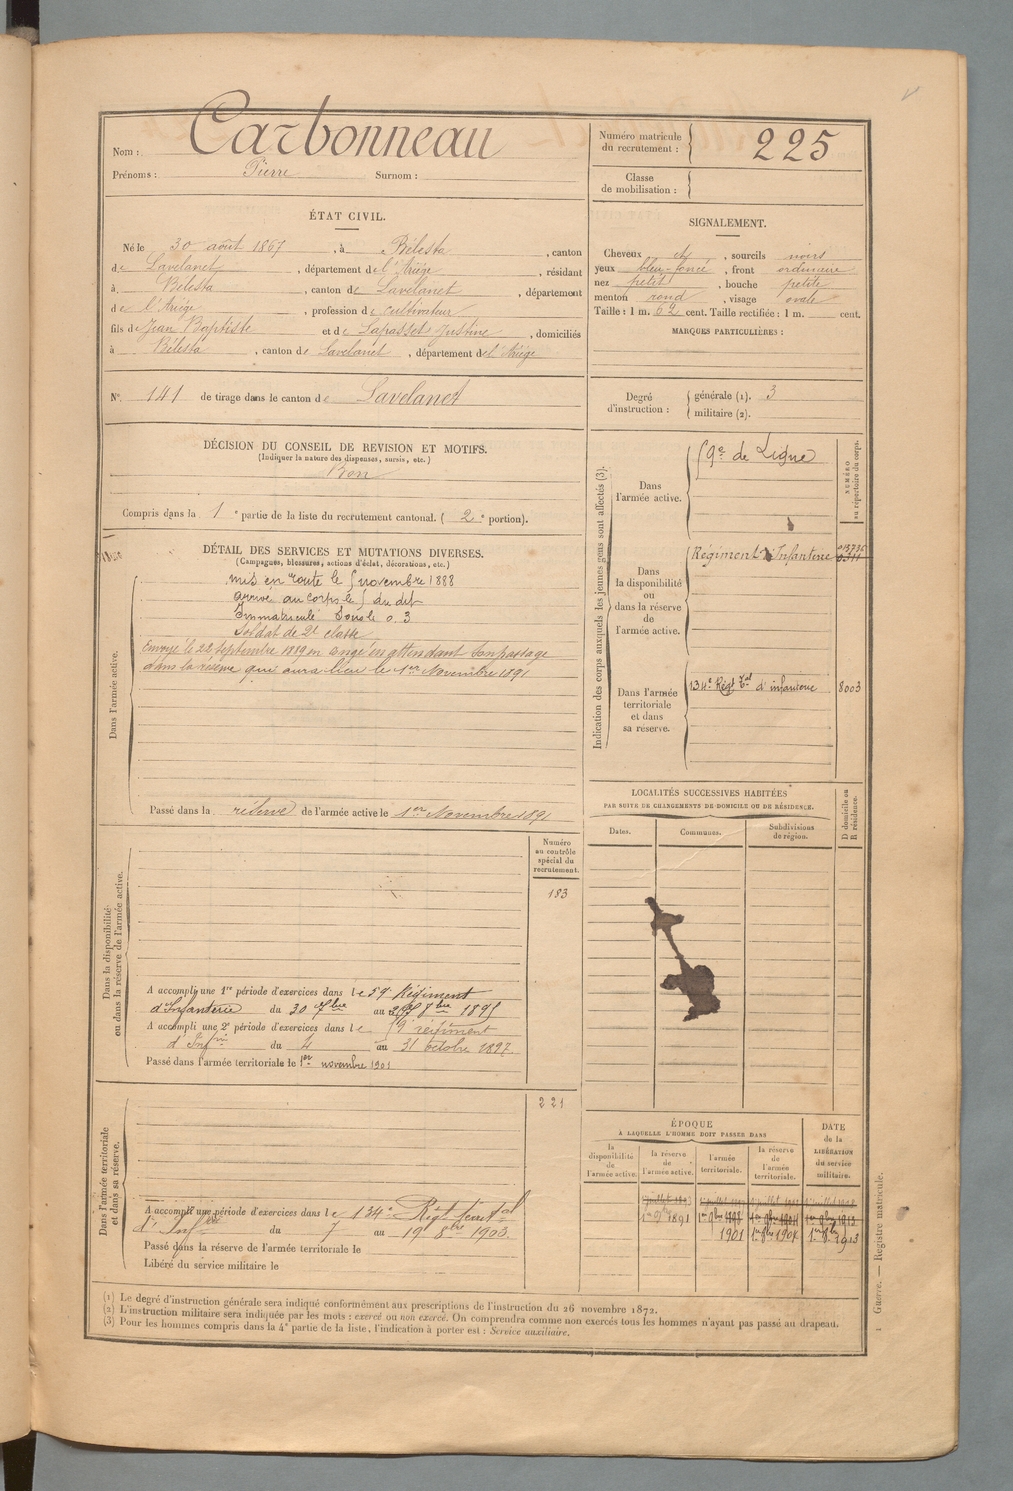 Nom : Carbonneau
Prénoms : Pierre Surnom :
Numéro matricule du recrutement : 225
Classe de mobilisation :
ÉTAT CIVIL.
Né le 30 août 1867, à Bélesta, canton
de Lavelanet, département de l'Ariège, résidant
à Bélesta, canton de Lavelanet, département
de l'Ariège, profession de cultivateur
fils de Jean Baptiste et de Lapasset Justine, domiciliés
à Bélesta, canton de Lavelanet, département de l'Ariège
N° 141 de tirage dans le canton de Lavelanet
SIGNALEMENT.
Cheveux et, sourcils noirs
yeux bleu-foncé, front ordinaire
nez petit, bouche petite
menton rond, visage ovale
Taille : 1 m. 62 cent. Taille rectifiée : 1 m. cent.
MARQUES PARTICULIÈRES :
Degré d'instruction : générale (1). 3
militaire (2).
DÉCISION DU CONSEIL DE REVISION ET MOTIFS.
(Indiquer la nature des dispenses, sursis, etc.)
Bon
Compris dans la 1e partie de la liste du recrutement cantonal. (2e portion).
DÉTAIL DES SERVICES ET MUTATIONS DIVERSES.
(Campagnes, blessures, actions d'éclat, décorations, etc.)
Dans l'armée active.
mis en route le 5 novembre 1888
arrivé au corps le 5 du dit
Immatriculé sous le n.
Soldat de 2e classe
Envoyé le 22 septembre 1889 en congé en attendant son passage
dans la réserve qui aura lieu le 1er Novembre 1891
Passé dans la réserve de l'armée active le 1er Novembre 1891
Indication des corps auxquels les jeunes gens sont affectés (3).
NUMÉRO au répertoire du corps.
Dans l'armée active.
59e de Ligne
Dans la disponibilité ou dans la réserve de l'armée active.
Régiment d'Infanterie
Dans l'armée territoriale et dans sa réserve.
134e Régt Tal d'infanterie 8003
LOCALITÉS SUCCESSIVES HABITÉES
PAR SUITE DE CHANGEMENTS DE DOMICILE OU DE RÉSIDENCE.
Dates. Communes. Subdivisions de région.
D domicile ou R résidence.
Dans la disponibilité ou dans la réserve de l'armée active.
Numéro au contrôle spécial du recrutement.
183
A accompli une 1re période d'exercices dans le 59 Régiment
d'Infanterie du 30 7bre au 8bre 1895
A accompli une 2e période d'exercices dans le 59e régiment
d'Infrie du 4 au 31 octobre 1897
Passé dans l'armée territoriale le 1er novembre 1901
Dans l'armée territoriale et dans sa réserve.
221
A accompli une période d'exercices dans le 134e Régt territal
d'Infrie du 7 au 19 8bre 1903
Passé dans la réserve de l'armée territoriale le
Libéré du service militaire le
ÉPOQUE
À LAQUELLE L'HOMME DOIT PASSER DANS
la disponibilité de l'armée active.
la réserve de l'armée active.
l'armée territoriale.
la réserve de l'armée territoriale.
DATE de la LIBÉRATION du service militaire.
1er 9bre 1891
1901
(1) Le degré d'instruction générale sera indiqué conformément aux prescriptions de l'instruction du 26 novembre 1872.
(2) L'instruction militaire sera indiquée par les mots : exercé ou non exercé. On comprendra comme non exercés tous les hommes n'ayant pas passé au drapeau.
(3) Pour les hommes compris dans la 4e partie de la liste, l'indication à porter est : Service auxiliaire.
1 Guerre. — Registre matricule.